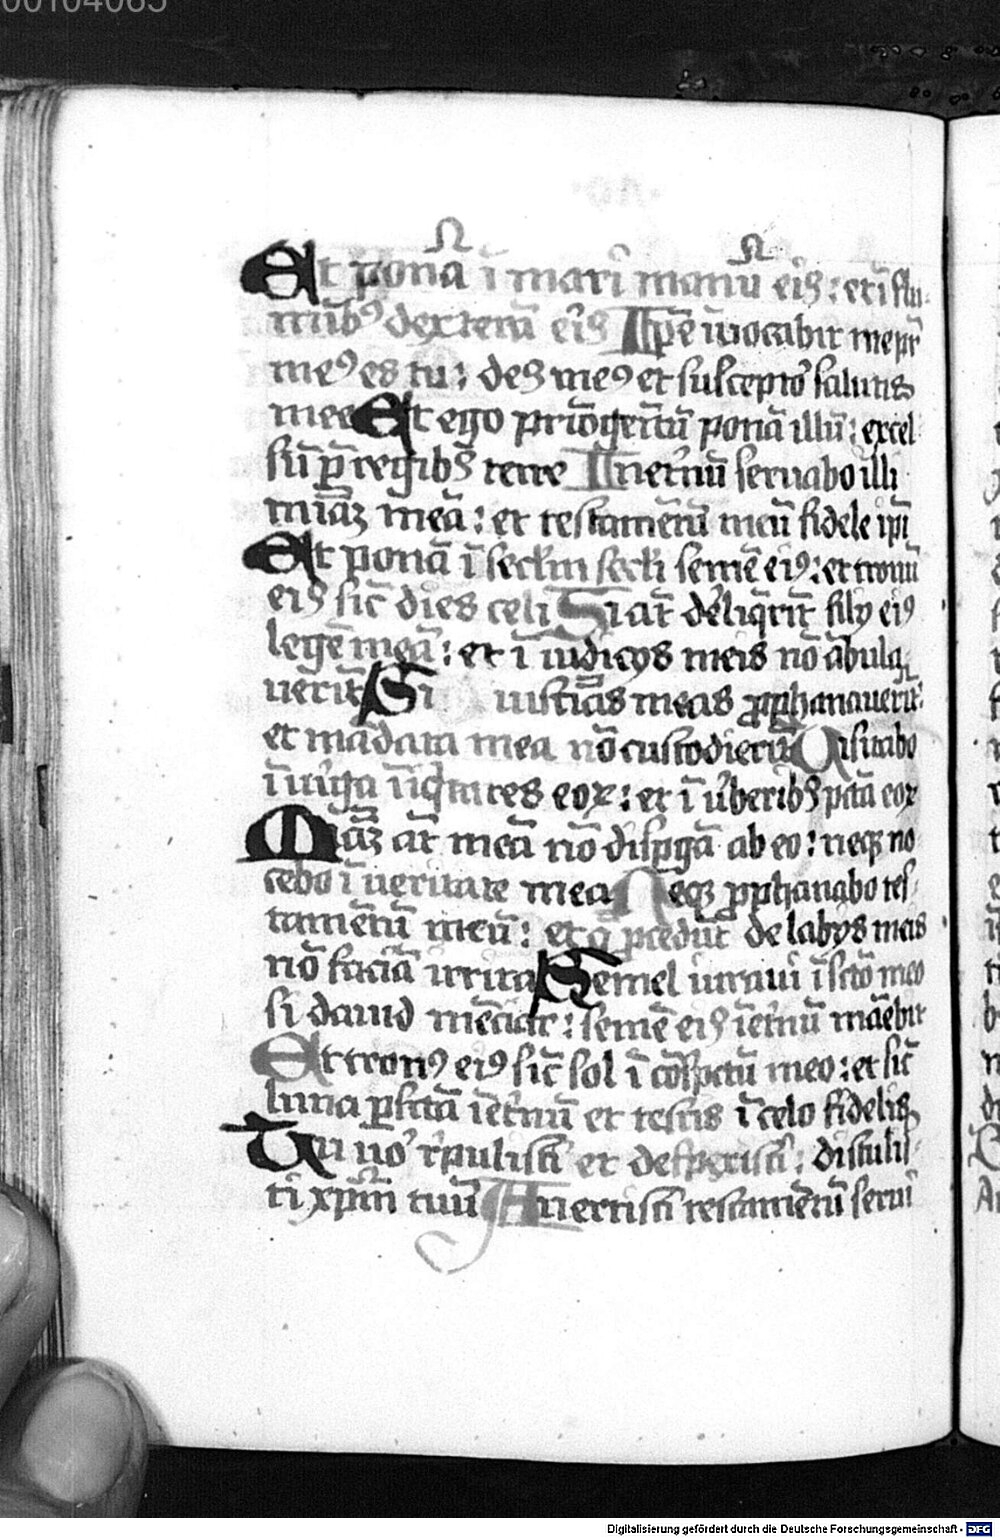 00104065
Et ponā ī mari manū eiꝰ: et ī flu-
minibꝰ dexterā eiꝰ Ipe īuocabit me pr̄
meꝰ es tu: deꝰ meꝰ et susceptor salutis
mee Et ego prīogenitū ponā illū: excel
sū p̄ regibꝰ terre In et̄nū seruabo illi
miāꝫ meā: et testamētū meū fidele ip̄i
Et ponā ī sectm̄ secti semē eiꝰ: et tronū
eiꝰ sic̄ dies celi Si aūt deliq̄rīt filij eiꝰ
legē meā: et ī iudicijs meis nō ābula
uerīt Si iusticiās meas ꝓphanauerīt:
et mādata mea nō custodierīt Uisitabo
ī uirga īiqtates eoꝝ: et ī ūberibꝰ pctā eoꝝ
Miāꝫ aūt meā nō dispgā ab eo: neqꝫ no
cebo ī ueritate mea Neqꝫ ꝓphanabo tes-
tamētū meū: et q̄ ꝓcedūt de labijs meis
nō faciā irrita Semel iuraui ī sctō meo
si dauid mēciar: semē eiꝰ īet̄nū māebit
Et tronꝰ eiꝰ sic̄ sol ī cōspctū meo: et sic̄
luna ꝑfctā īet̄nū et testis ī celo fidelis
Tu uo᷑ r̄pulisti et despexisti: distulis-
ti xp̄m tuū Auertisti testamētū serui
Digitalisierung gefördert durch die Deutsche Forschungsgemeinschaft - DFG